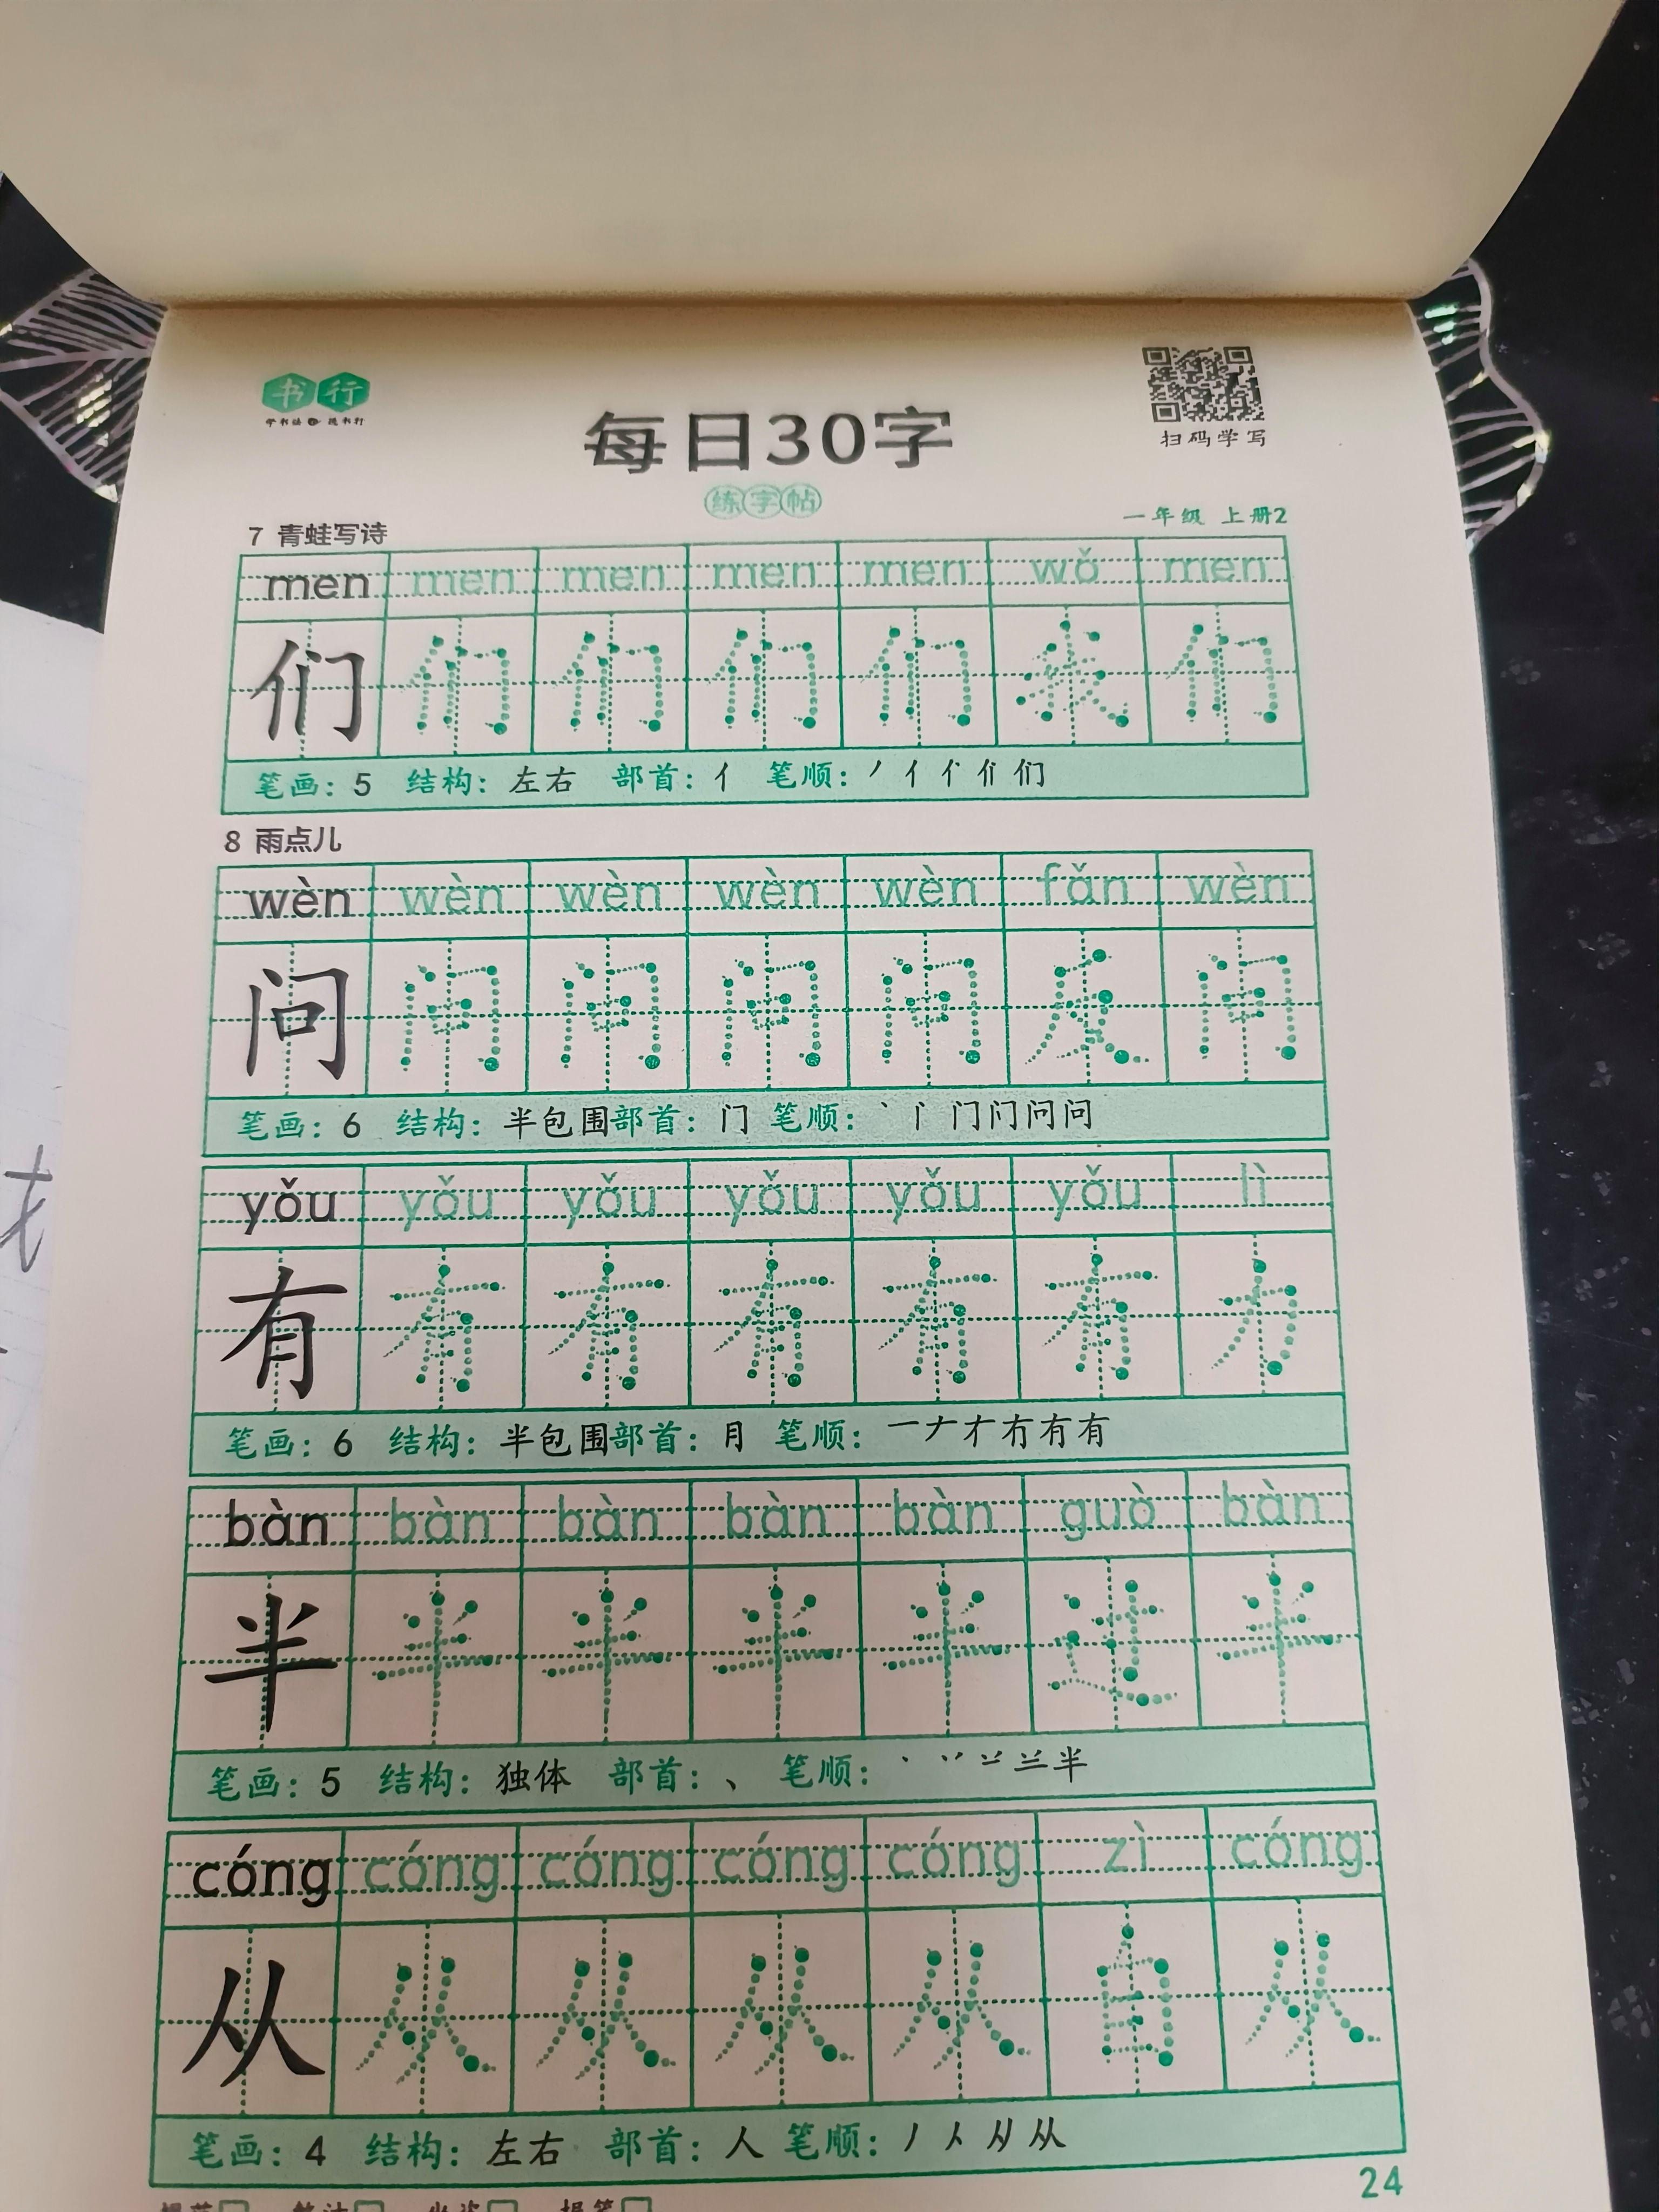 书行
学书法 选书行
每日30字
扫码学写
练字帖
一年级 上册2
7 青蛙写诗
men men men men men wǒ men
们 们 们 们 们 我 们
笔画：5 结构：左右 部首：亻 笔顺：丿 亻 们
8 雨点儿
wèn wèn wèn wèn wèn fǎn wèn
问 问 问 问 问 反 问
笔画：6 结构：半包围 部首：门 笔顺：丶 门 门 问 问
yǒu yǒu yǒu yǒu yǒu yǒu lì
有 有 有 有 有 有 力
笔画：6 结构：半包围 部首：月 笔顺：一 ナ 冇 有 有
bàn bàn bàn bàn bàn guò bàn
半 半 半 半 半 过 半
笔画：5 结构：独体 部首：丶 笔顺：丶 丷 兰 半
cóng cóng cóng cóng cóng zì cóng
从 从 从 从 从 自 从
笔画：4 结构：左右 部首：人 笔顺：丿 从
24